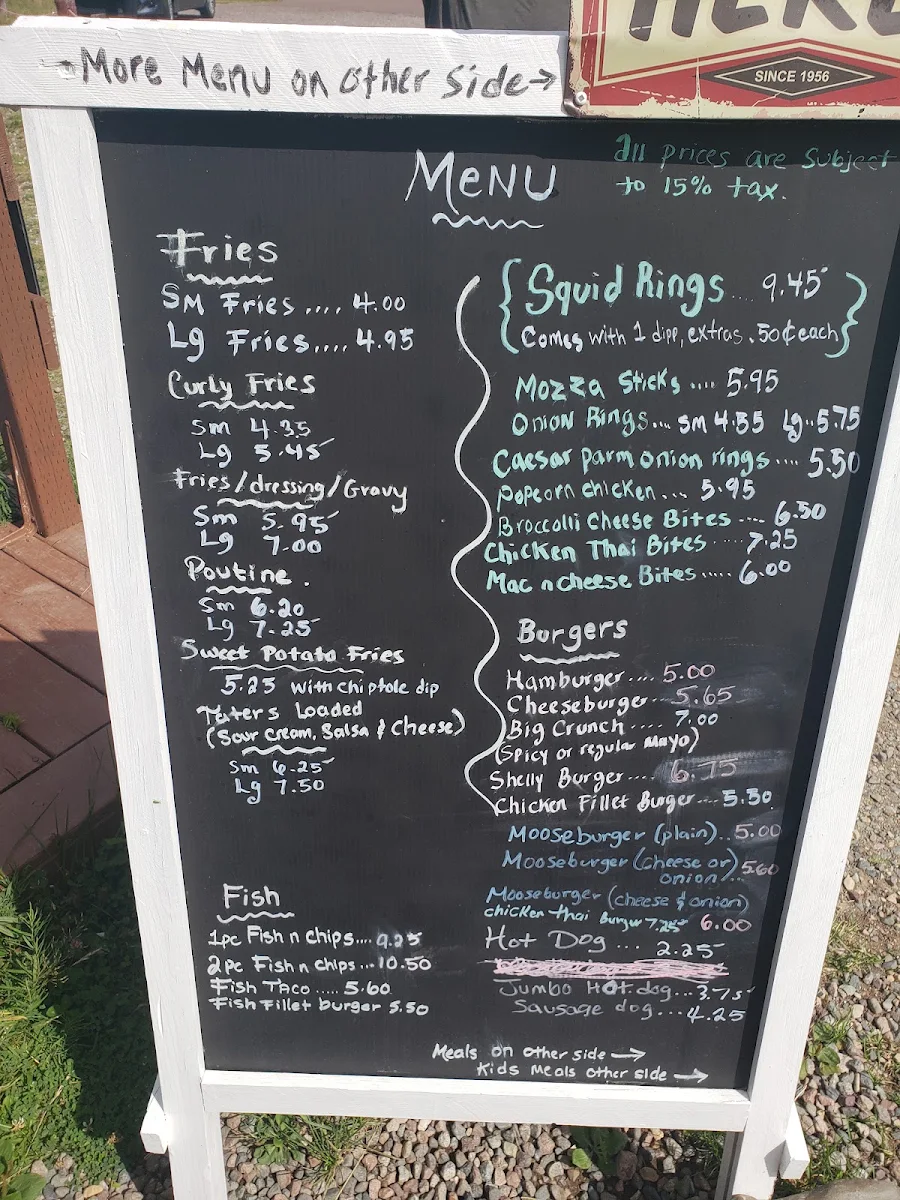 More Menu on other side →
HERE
SINCE 1956
All prices are subject
to 15% tax.
MENU
Fries
SM Fries .... 4.00
Lg Fries.... 4.95
Curly Fries
Sm 4.35
Lg 5.45
Fries/dressing/Gravy
Sm 5.95
Lg 7.00
Poutine .
Sm 6.20
Lg 7.25
Sweet Potato Fries
5.25 with chiptole dip
Taters Loaded
(Sour cream, Salsa & Cheese)
Sm 6.25
Lg 7.50
Fish
1pc Fish n chips.... 9.25
2pc Fish n chips ... 10.50
Fish Taco ..... 5.60
Fish Fillet burger 5.50
{Squid Rings .... 9.45}
{Comes with 1 dipp, extras .50¢ each}
Mozza Sticks .... 5.95
Onion Rings... SM 4.55 Lg.. 5.75
Caesar parm onion rings .... 5.50
Popcorn chicken ... 5.95
Broccolli Cheese Bites .... 6.50
Chicken Thai Bites .... 7.25
Mac n cheese Bites ..... 6.00
Burgers
Hamburger .... 5.00
Cheeseburger .... 5.65
Big Crunch .... 7.00
(Spicy or regular Mayo)
Shelly Burger .... 6.75
Chicken Fillet Burger ... 5.50
Mooseburger (plain) .. 5.00
Mooseburger (cheese or)
onion ... 5.60
Mooseburger (cheese & onion)
6.00
chicken thai Burger 7.25
Hot Dog .... 2.25
Jumbo Hot dog ... 3.75
Sausage dog .... 4.25
Meals on other side →
Kids Meals other side →